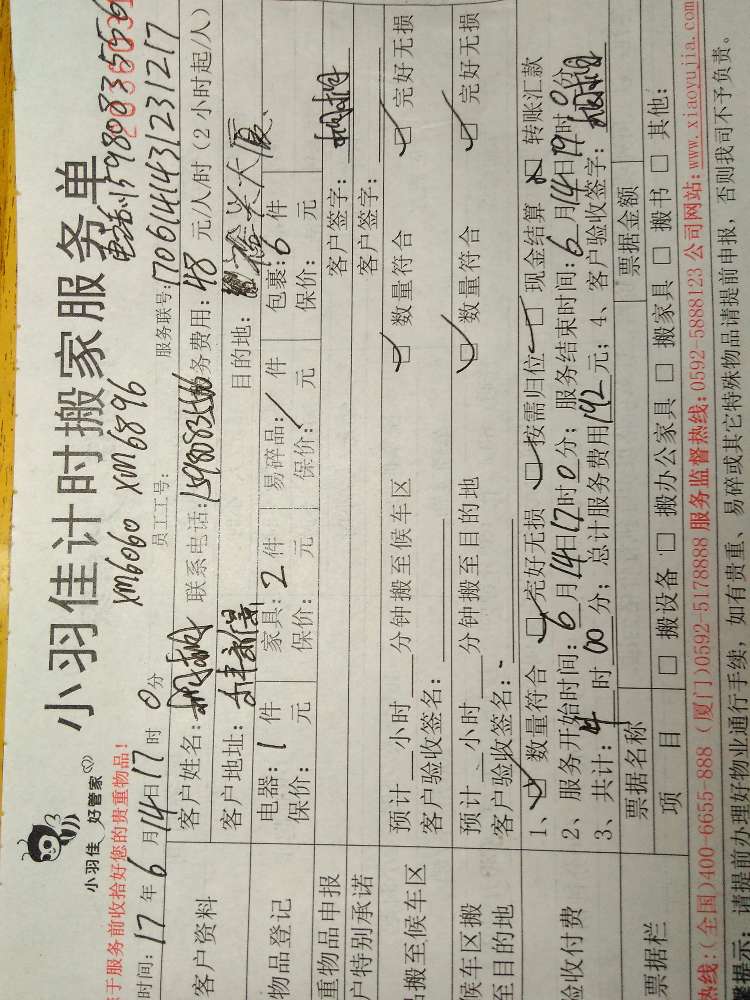 小羽佳 好管家
小羽佳计时搬家服务单
于服务前收拾好您的贵重物品!
XM6060 XM6896
电话:15980835566
时间: 17年6月14日17时0分
员工工号:
服务联号: 1706141431231217
客户资料
客户姓名: 联系电话: 务费用: 48 元/人/时 (2小时起/人)
客户地址: 目的地: 裕兴大厦
物品登记
电器: 1 件 家具: 2 件 易碎品: / 件 包裹: 6 件
保价: 元 保价: 元 保价: 元 保价: 元
重物品申报 客户签字:
户特别承诺 客户签字:
搬至候车区
预计 小时 分钟搬至候车区 □ 数量符合 □ 完好无损
客户验收签名:
候车区搬
至目的地
预计 小时 分钟搬至目的地 □ 数量符合 □ 完好无损
客户验收签名:
验收付费
1、□ 数量符合 □ 完好无损 □ 按需归位 □ 现金结算 □ 转账汇款
2、服务开始时间: 6月14日17时0分; 服务结束时间: 6月14日19时0分
3、共计: 4 时 00 分; 总计服务费用 192 元; 4、客户验收签字:
票据栏
票据名称 票据金额
项 目 □ 搬设备 □ 搬办公家具 □ 搬家具 □ 搬书 □ 其他:
热线: (全国)400-6655-888 (厦门)0592-5178888 服务监督热线: 0592-5888123 公司网站: www.xiaoyujia.com
提示: 请提前办理好物业通行手续, 如有贵重、易碎或其它特殊物品请提前申报, 否则我司不予负责。